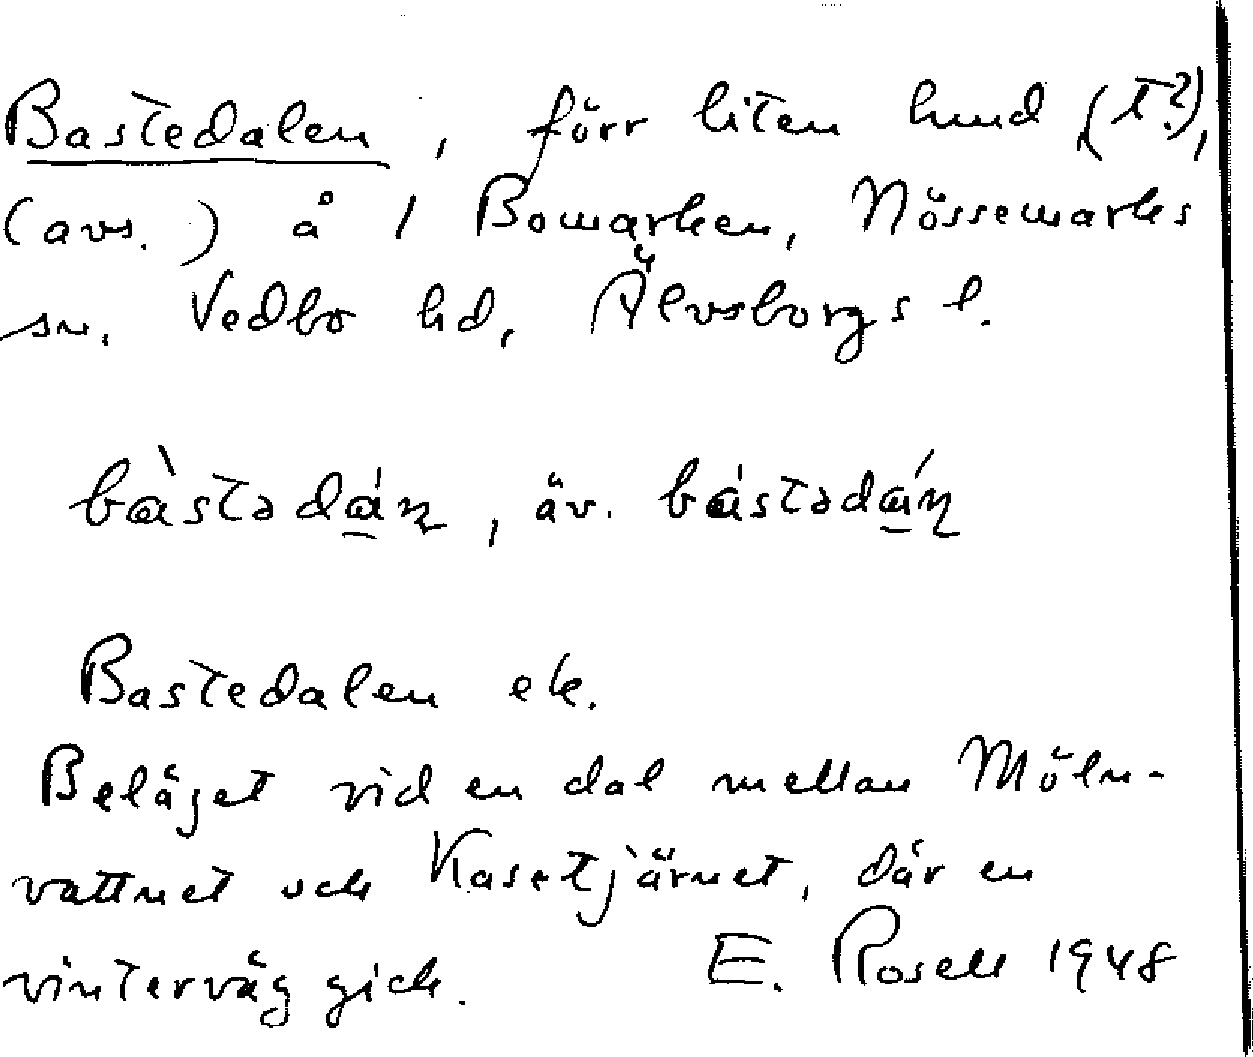 Bastedalen, förr liten lund (t?),
(avs.) å 1 Bomarken, Nössemarks
sn. Vedbo hd, Älvsborgs l.
bàstədán, äv. bástədán
Bastedalen ek.
Beläget vid en dal mellan Möln-
vattnet och Kasetjärnet, där en
vinterväg gick. E. Rosell 1948